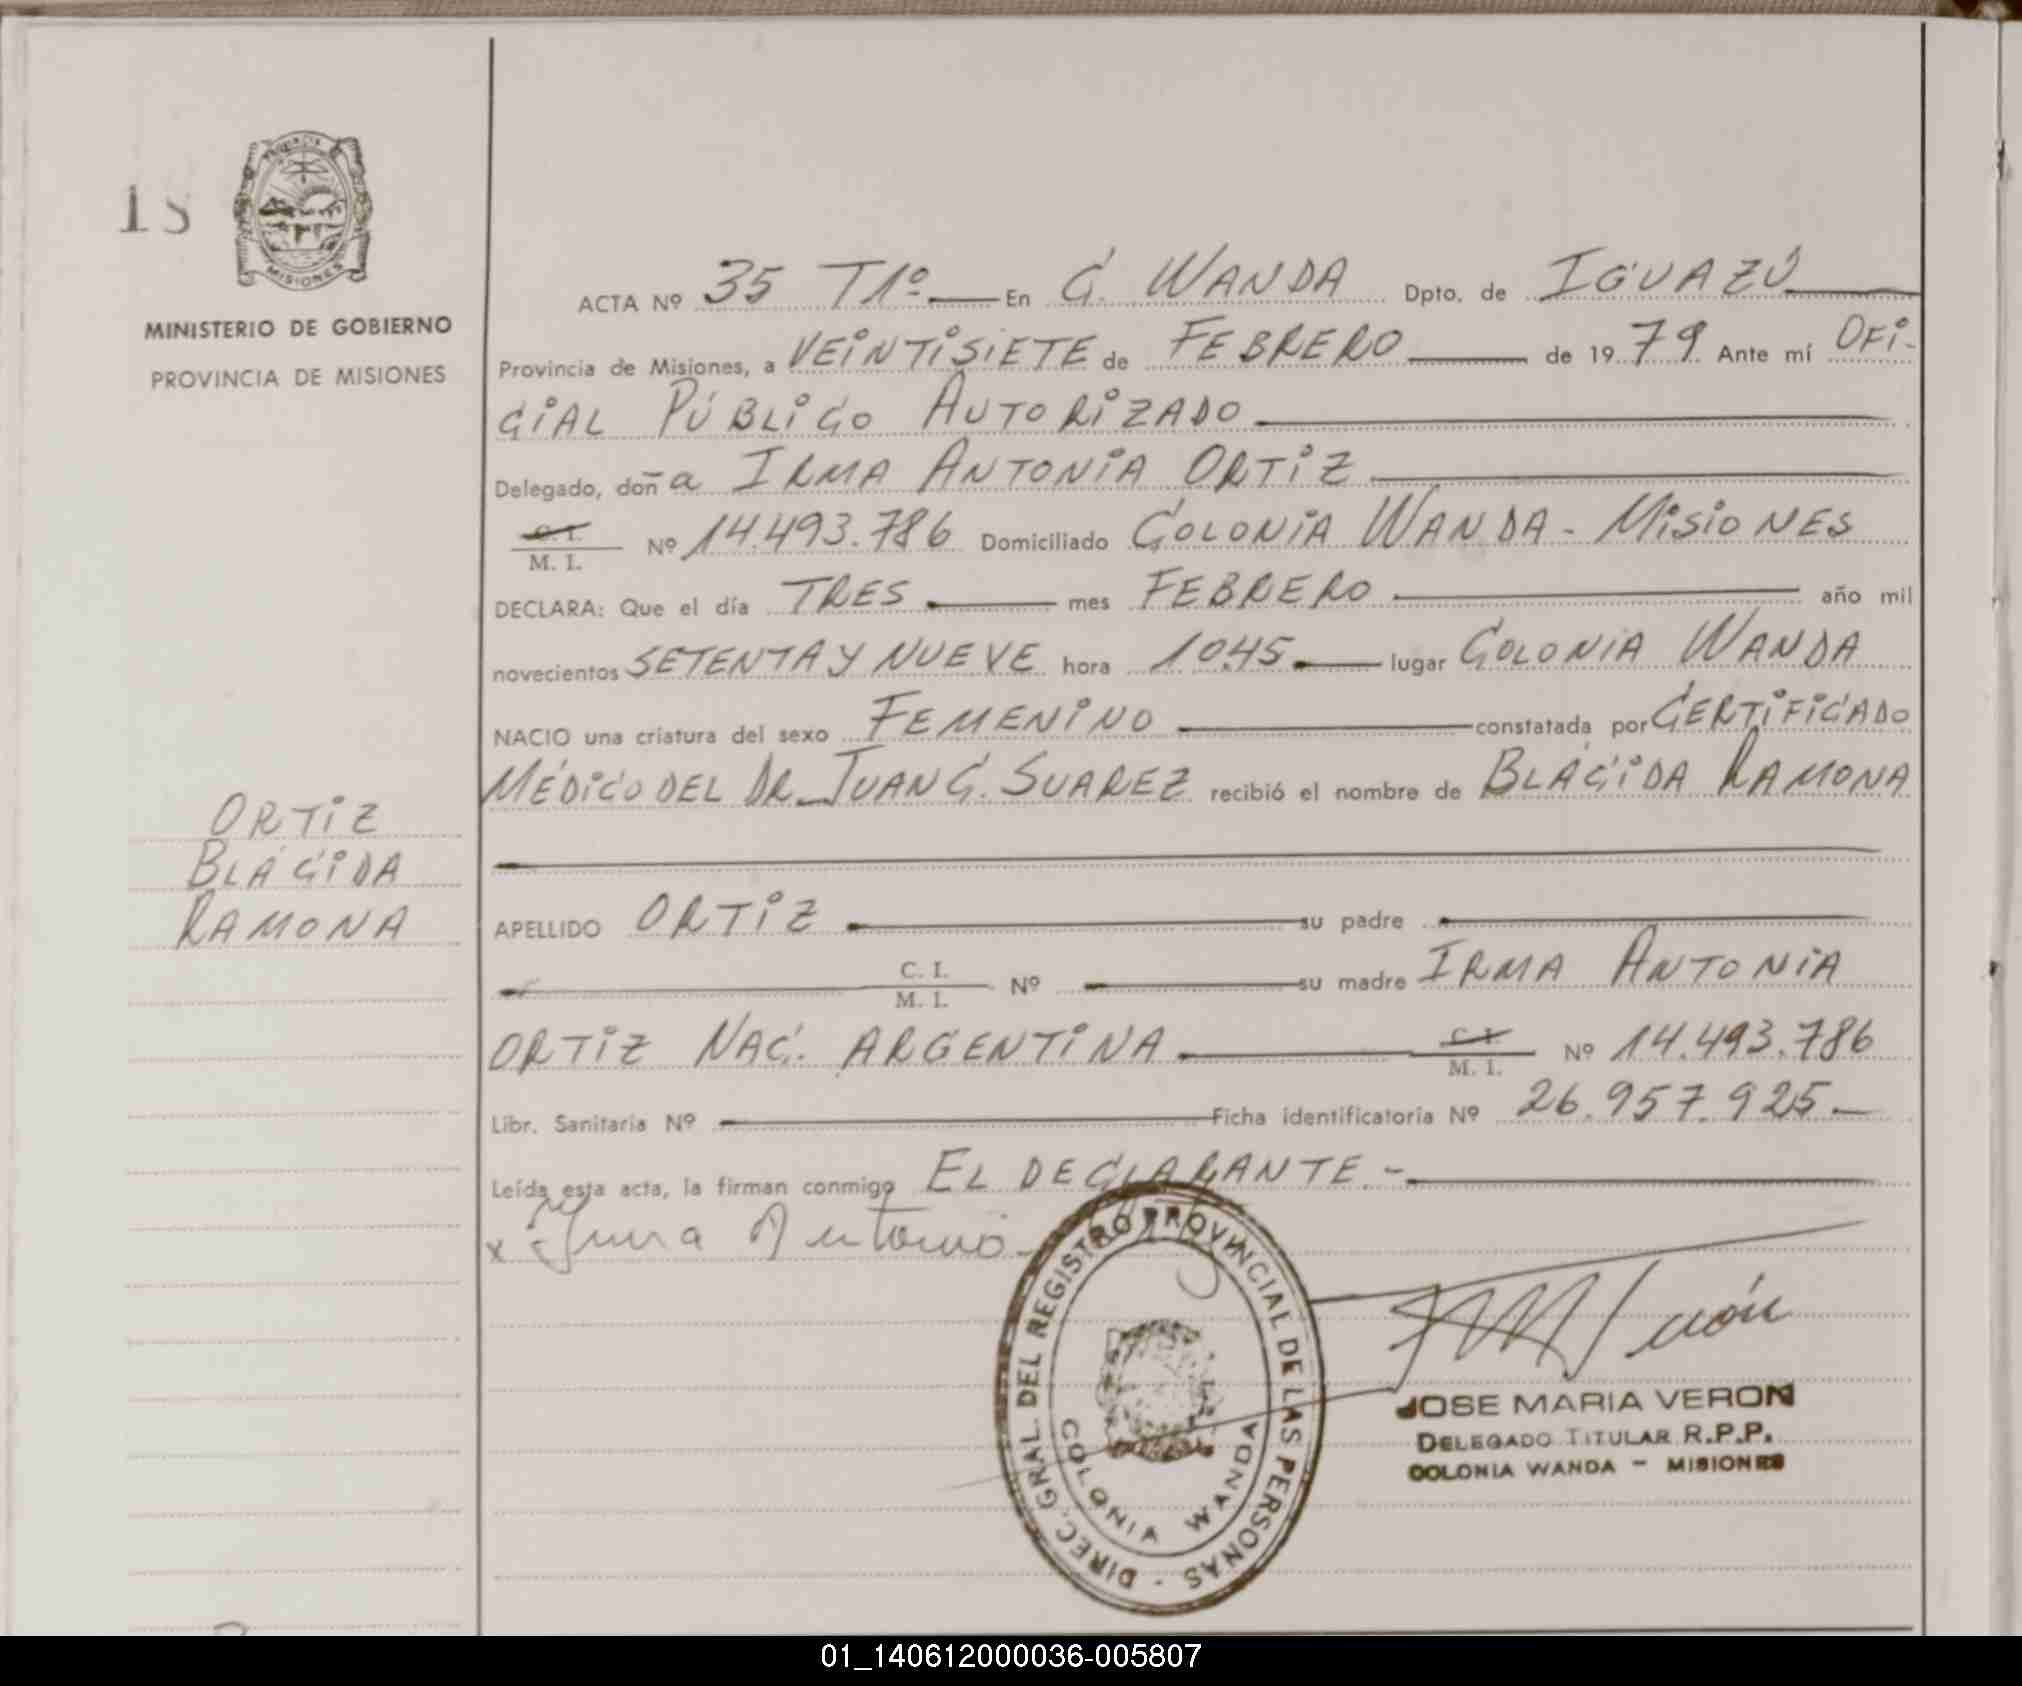 18
PROVINCIA DE
MISIONES
MINISTERIO DE GOBIERNO
PROVINCIA DE MISIONES
ORTIZ
BLÁCIDA
RAMONA
ACTA Nº 35 T1º En C. WANDA Dpto. de IGUAZÚ
Provincia de Misiones, a VEINTISIETE de FEBRERO de 1979 Ante mí OFI-
CIAL PÚBLICO AUTORIZADO
Delegado, doña IRMA ANTONIA ORTIZ
C. I.
M. I. Nº 14.493.786 Domiciliado COLONIA WANDA - MISIONES
DECLARA: Que el día TRES mes FEBRERO año mil
novecientos SETENTA Y NUEVE hora 10.45 lugar COLONIA WANDA
NACIO una criatura del sexo FEMENINO constatada por CERTIFICADO
MÉDICO DEL DR. JUAN C. SUAREZ recibió el nombre de BLÁCIDA RAMONA
APELLIDO ORTIZ su padre
C. I.
M. I. Nº su madre IRMA ANTONIA
ORTIZ NAC. ARGENTINA C. I.
M. I. Nº 14.493.786
Libr. Sanitaria Nº Ficha identificatoria Nº 26.957.925.-
Leída esta acta, la firman conmigo EL DECLARANTE.-
x Irma Antonia
DIREC. GRAL. DEL REGISTRO PROVINCIAL DE LAS PERSONAS -
COLONIA WANDA
JOSE MARIA VERON
DELEGADO TITULAR R.P.P.
COLONIA WANDA - MISIONES
01_140612000036-005807